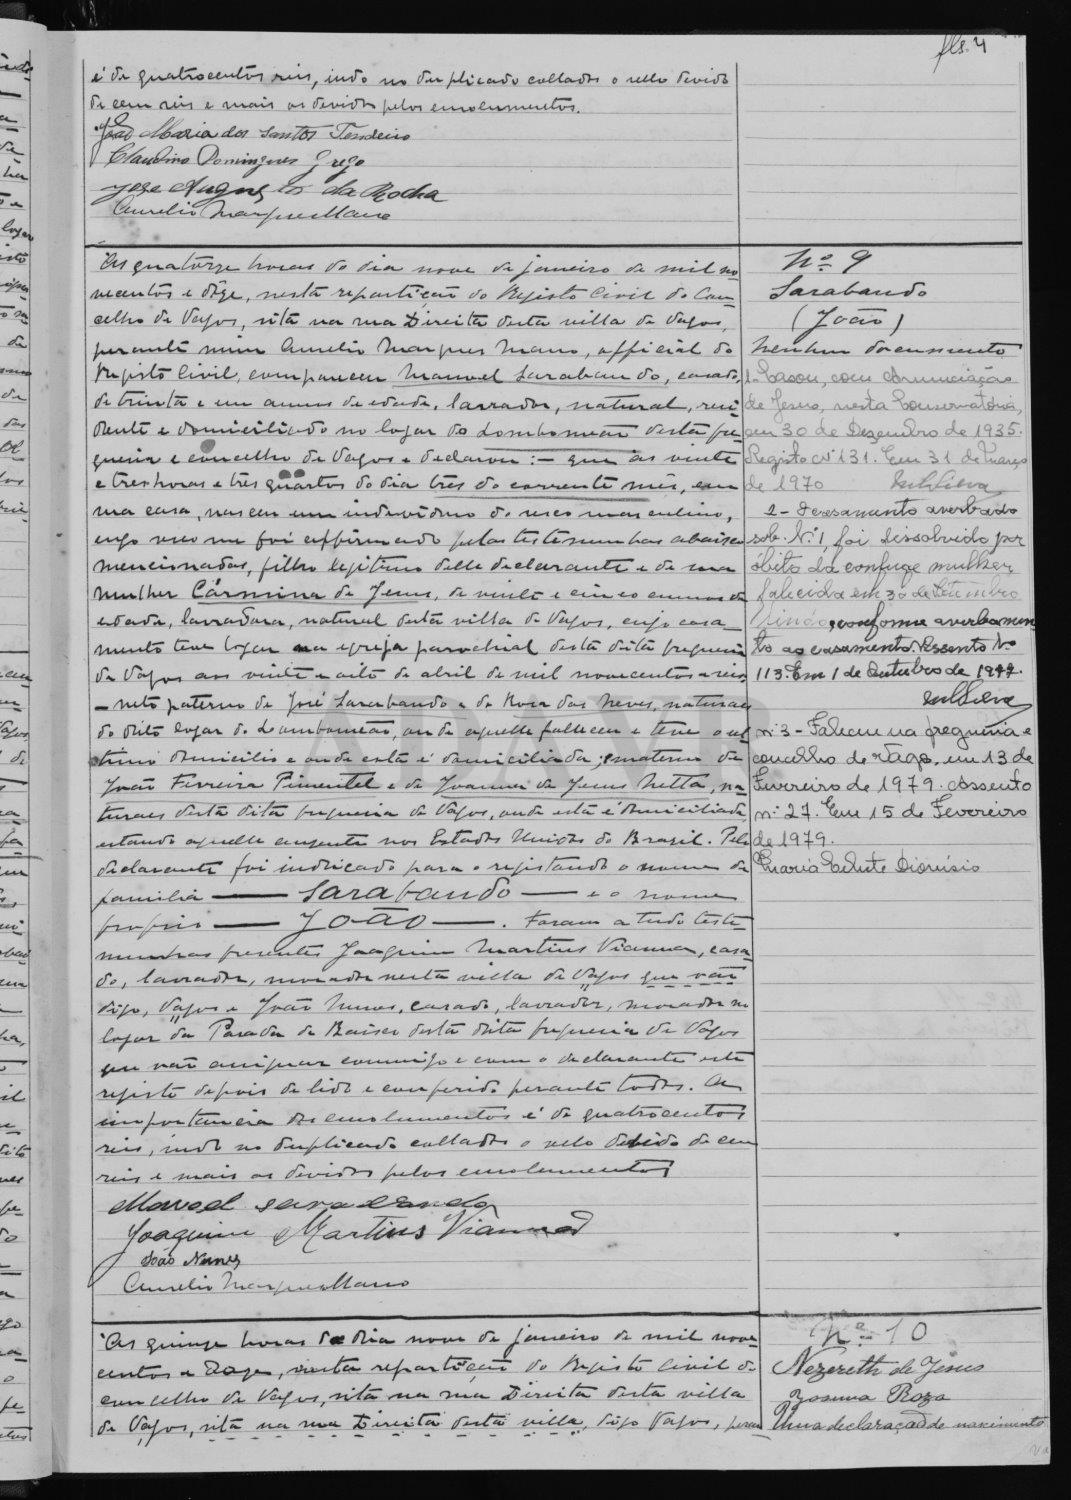 fls. 4
é de quatrocentos reis, indo no duplicado collados o sello devido
de cem reis e mais os devidos pelos emolumentos.
João Maria dos Santos Tendeiro
Claudino Domingues Grego
José Augusto da Rocha
Aurelio Marques Mano
Nº 9
Sarabando
(João)
Nenhum documento
Ás quatorze horas do dia nove de janeiro de mil no
vecentos e dôze, nesta repartição do Registo Civil do Con
celho de Vagos, sita na rua Direita desta villa de Vagos,
perante mim Aurelio Marques Mano, official do
Registo Civil, compareceu Manoel Sarabando, casado,
de trinta e um annos de edade, lavrador, natural, resi
dente e domiciliado no logar do Lombomeão desta fre
guesia e concelho de Vagos e declarou: – que ás vinte
e tres horas e três quartos do dia três do corrente mês, em
sua casa, nasceu um individuo do sexo masculino,
cujo sexo me foi affirmado pelas testemunhas abaixo
mencionadas, filho legitimo delle declarante e de sua
mulher Cármina de Jesus, de vinte e cinco annos de
edade, lavradora, natural desta villa de Vagos, cujo casa
mento teve logar na egreja parochial desta dita freguesia
de Vagos aos vinte e oito de abril de mil novecentos e seis,
– neto paterno de José Sarabando e de Rosa das Neves, naturaes
do dito logar do Lombomeão, onde aquelle falleceu e teve o ul
timo domicilio e onde esta é domiciliada; e materno de
João Ferreira Pimentel e de Joanna de Jesus Netta, na
turaes desta dita freguesia de Vagos, onde esta é domiciliada,
estando aquelle ausente nos Estados Unidos do Brasil. Pelo
declarante foi indicado para o registando o nome de
familia — Sarabando — e o nome
proprio — JOÃO — . Foram a tudo teste
munhas presentes Joaquim Martins Vianna, casa
do, lavrador, morador nesta villa de Vagos que vão
digo, Vagos e João Nunes, casado, lavrador, morador no
logar da Parada de Baixo desta dita freguesia de Vagos
que vão assignar commigo e com o declarante este
registo depois de lido e conferido perante todos. A
importancia dos emolumentos é de quatrocentos
reis, indo no duplicado collados o sello devido de cem
reis e mais os devidos pelos emolumentos
Manoel Sarabando
Joaquim Martins Vianna
João Nunes
Aurelio Marques Mano
1- Casou, com Anunciação
de Jesus, nesta Conservatória,
em 30 de Dezembro de 1935.
Registo Nº 131. Em 31 de Março
de 1970
2- O casamento averbado
sob Nº 1, foi dissolvido por
óbito da conjuge mulher,
falecida em 30 de Setembro
findo, conforme averbamen
to ao casamento. Assento Nº
113. Em 1 de Outubro de 1977.
nº 3 - Faleceu na freguesia e
concelho de Vagos, em 13 de
Fevereiro de 1979. Assento
nº 27. Em 15 de Fevereiro
de 1979.
ADAVR
Ás quinze horas do dia nove de janeiro de mil nove
centos e doze, nesta repartição do Registo Civil do
concelho de Vagos, sita na rua Direita desta villa
de Vagos, sita na rua Direita desta villa, digo Vagos, peran
Nº 10
Nezereth de Jesus
Rosa
Uma declaração de nascimento